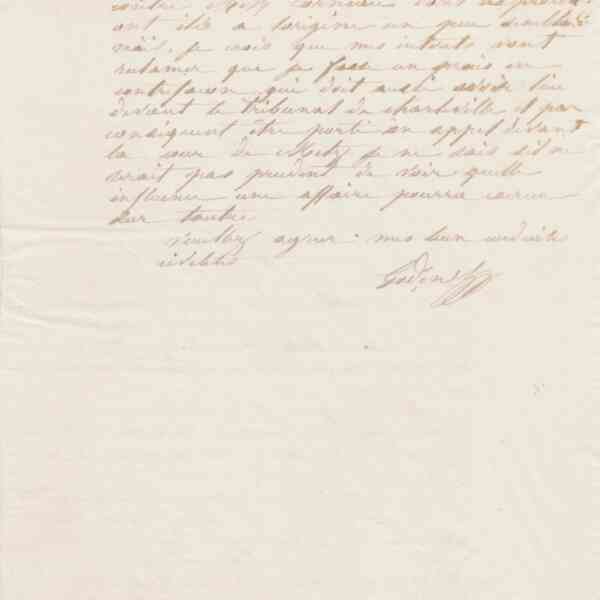 contre Metz Corneau
ont été a l'origine un peu simulta
nées. je crois que mes intérets vont
réclamer que je fasse un procès en
contrefaçon qui doit aussi avoir lieu
devant le tribunal de charleville et par
conséquent être porté en appel devant
la cour de Metz je ne sais s'il ne
serait pas prudent de voir quelle
influence une affaire pourra exercer
sur l'autre
veuillez agréer mes bien
civilités
Godin